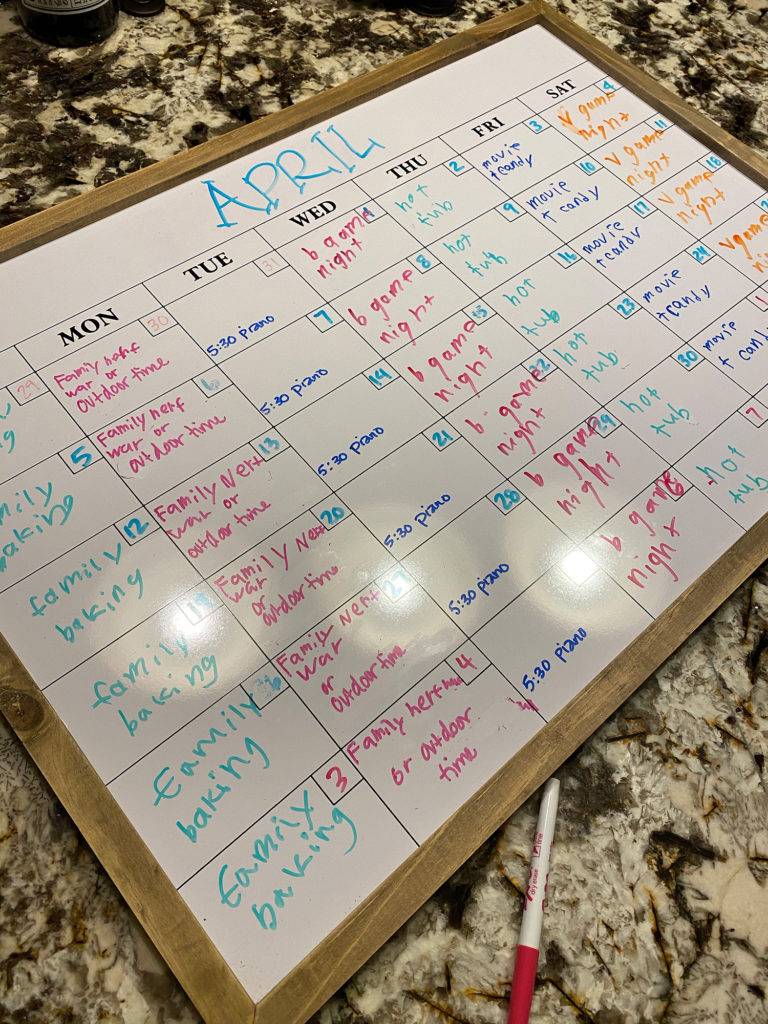 APRIL
MON
TUE
WED
THU
FRI
SAT
29
30
Family nerf
war or
outdoor time
31
5:30 piano
1
b game
night
2
hot
tub
3
movie
+ candy
4
v game
night
5
mily
aking
6
Family nerf
war or
outdoor time
7
5:30 piano
8
b game
night
9
hot
tub
10
movie
+ candy
11
v game
night
12
family
baking
13
Family Nerf
war or
outdoor time
14
5:30 piano
15
b game
night
16
hot
tub
17
movie
+ candy
18
v game
night
19
family
baking
20
Family Nerf
war
or
outdoor time
21
5:30 piano
22
b game
night
23
hot
tub
24
movie
+ candy
v game
26
Family
baking
27
Family Nerf
war
or
outdoor time
28
5:30 piano
29
b game
night
30
hot
tub
1
movie
+ cand
3
Family
baking
4
Family nerf war
or outdoor
time
5:30 piano
6
b game
night
7
hot
tub
dry erase
fine